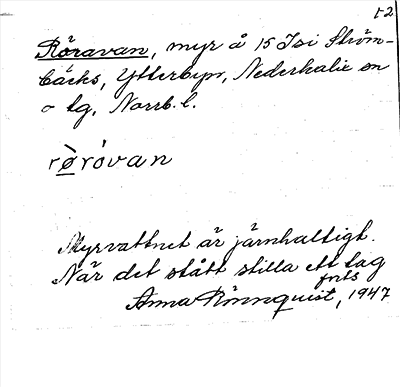 t2
Röravan, myr å 15 Isi Ström-
bäcks, Ytterbyn, Nederkalix sn
o tg, Norrb. l.
rø̀róvan
Myrvattnet är järnhaltigt.
När det stått stilla ett tag
fnts
Anna Rönnquist, 1947